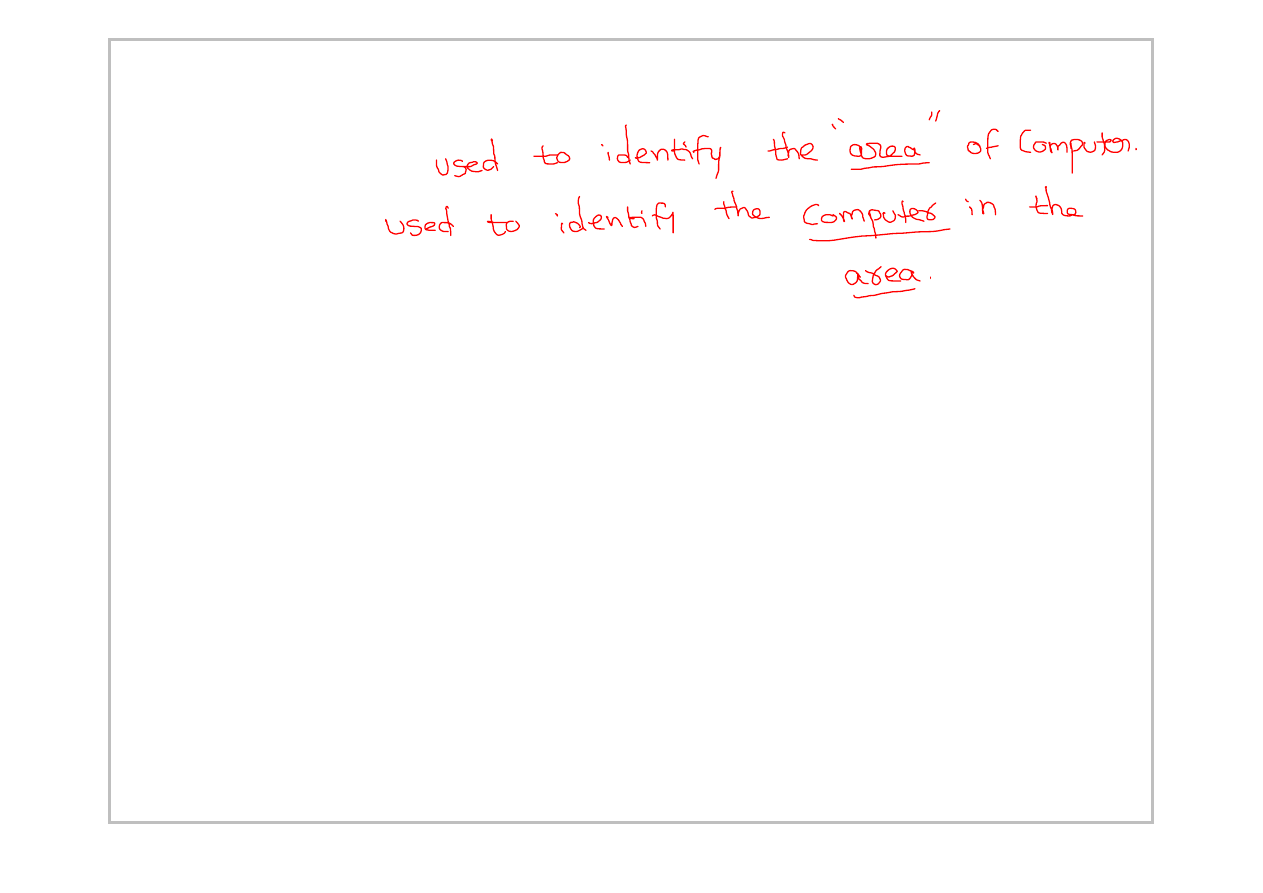 used to identify the "area" of Computer.
used to identify the Computer in the
area.